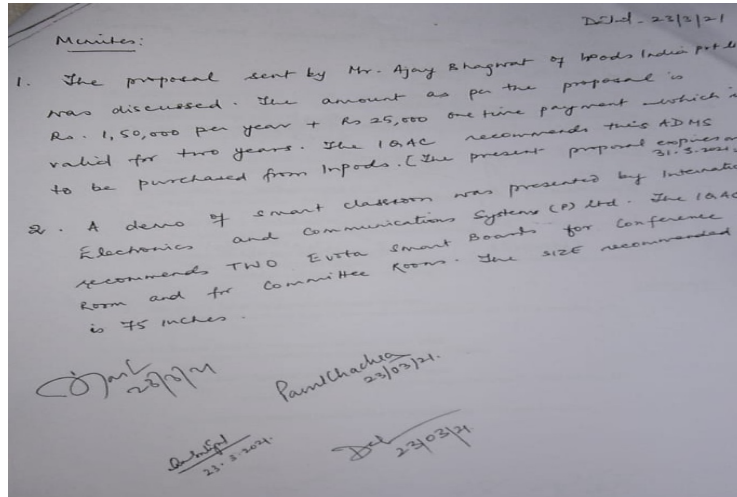 Dated - 23/3/21
Minutes:
1. The proposal sent by Mr. Ajay Bhagwat of Inpods India pvt
was discussed. The amount as per the proposal is
Rs. 1,50,000 per year + Rs 25,000 one time payment which
valid for two years. The IQAC recommends this ADMS
to be purchased from Inpods. (The present proposal expires on
31.3.2021.
2. A demo of smart classroom was presented by
Electronics and Communications Systems (P) Ltd. The IQAC
recommends TWO Smart Boards for Conference
Room and for Committee Room. The SIZE recommended
is 75 inches.
23/3/21
23/03/21.
23.3.2021.
23/03/21.